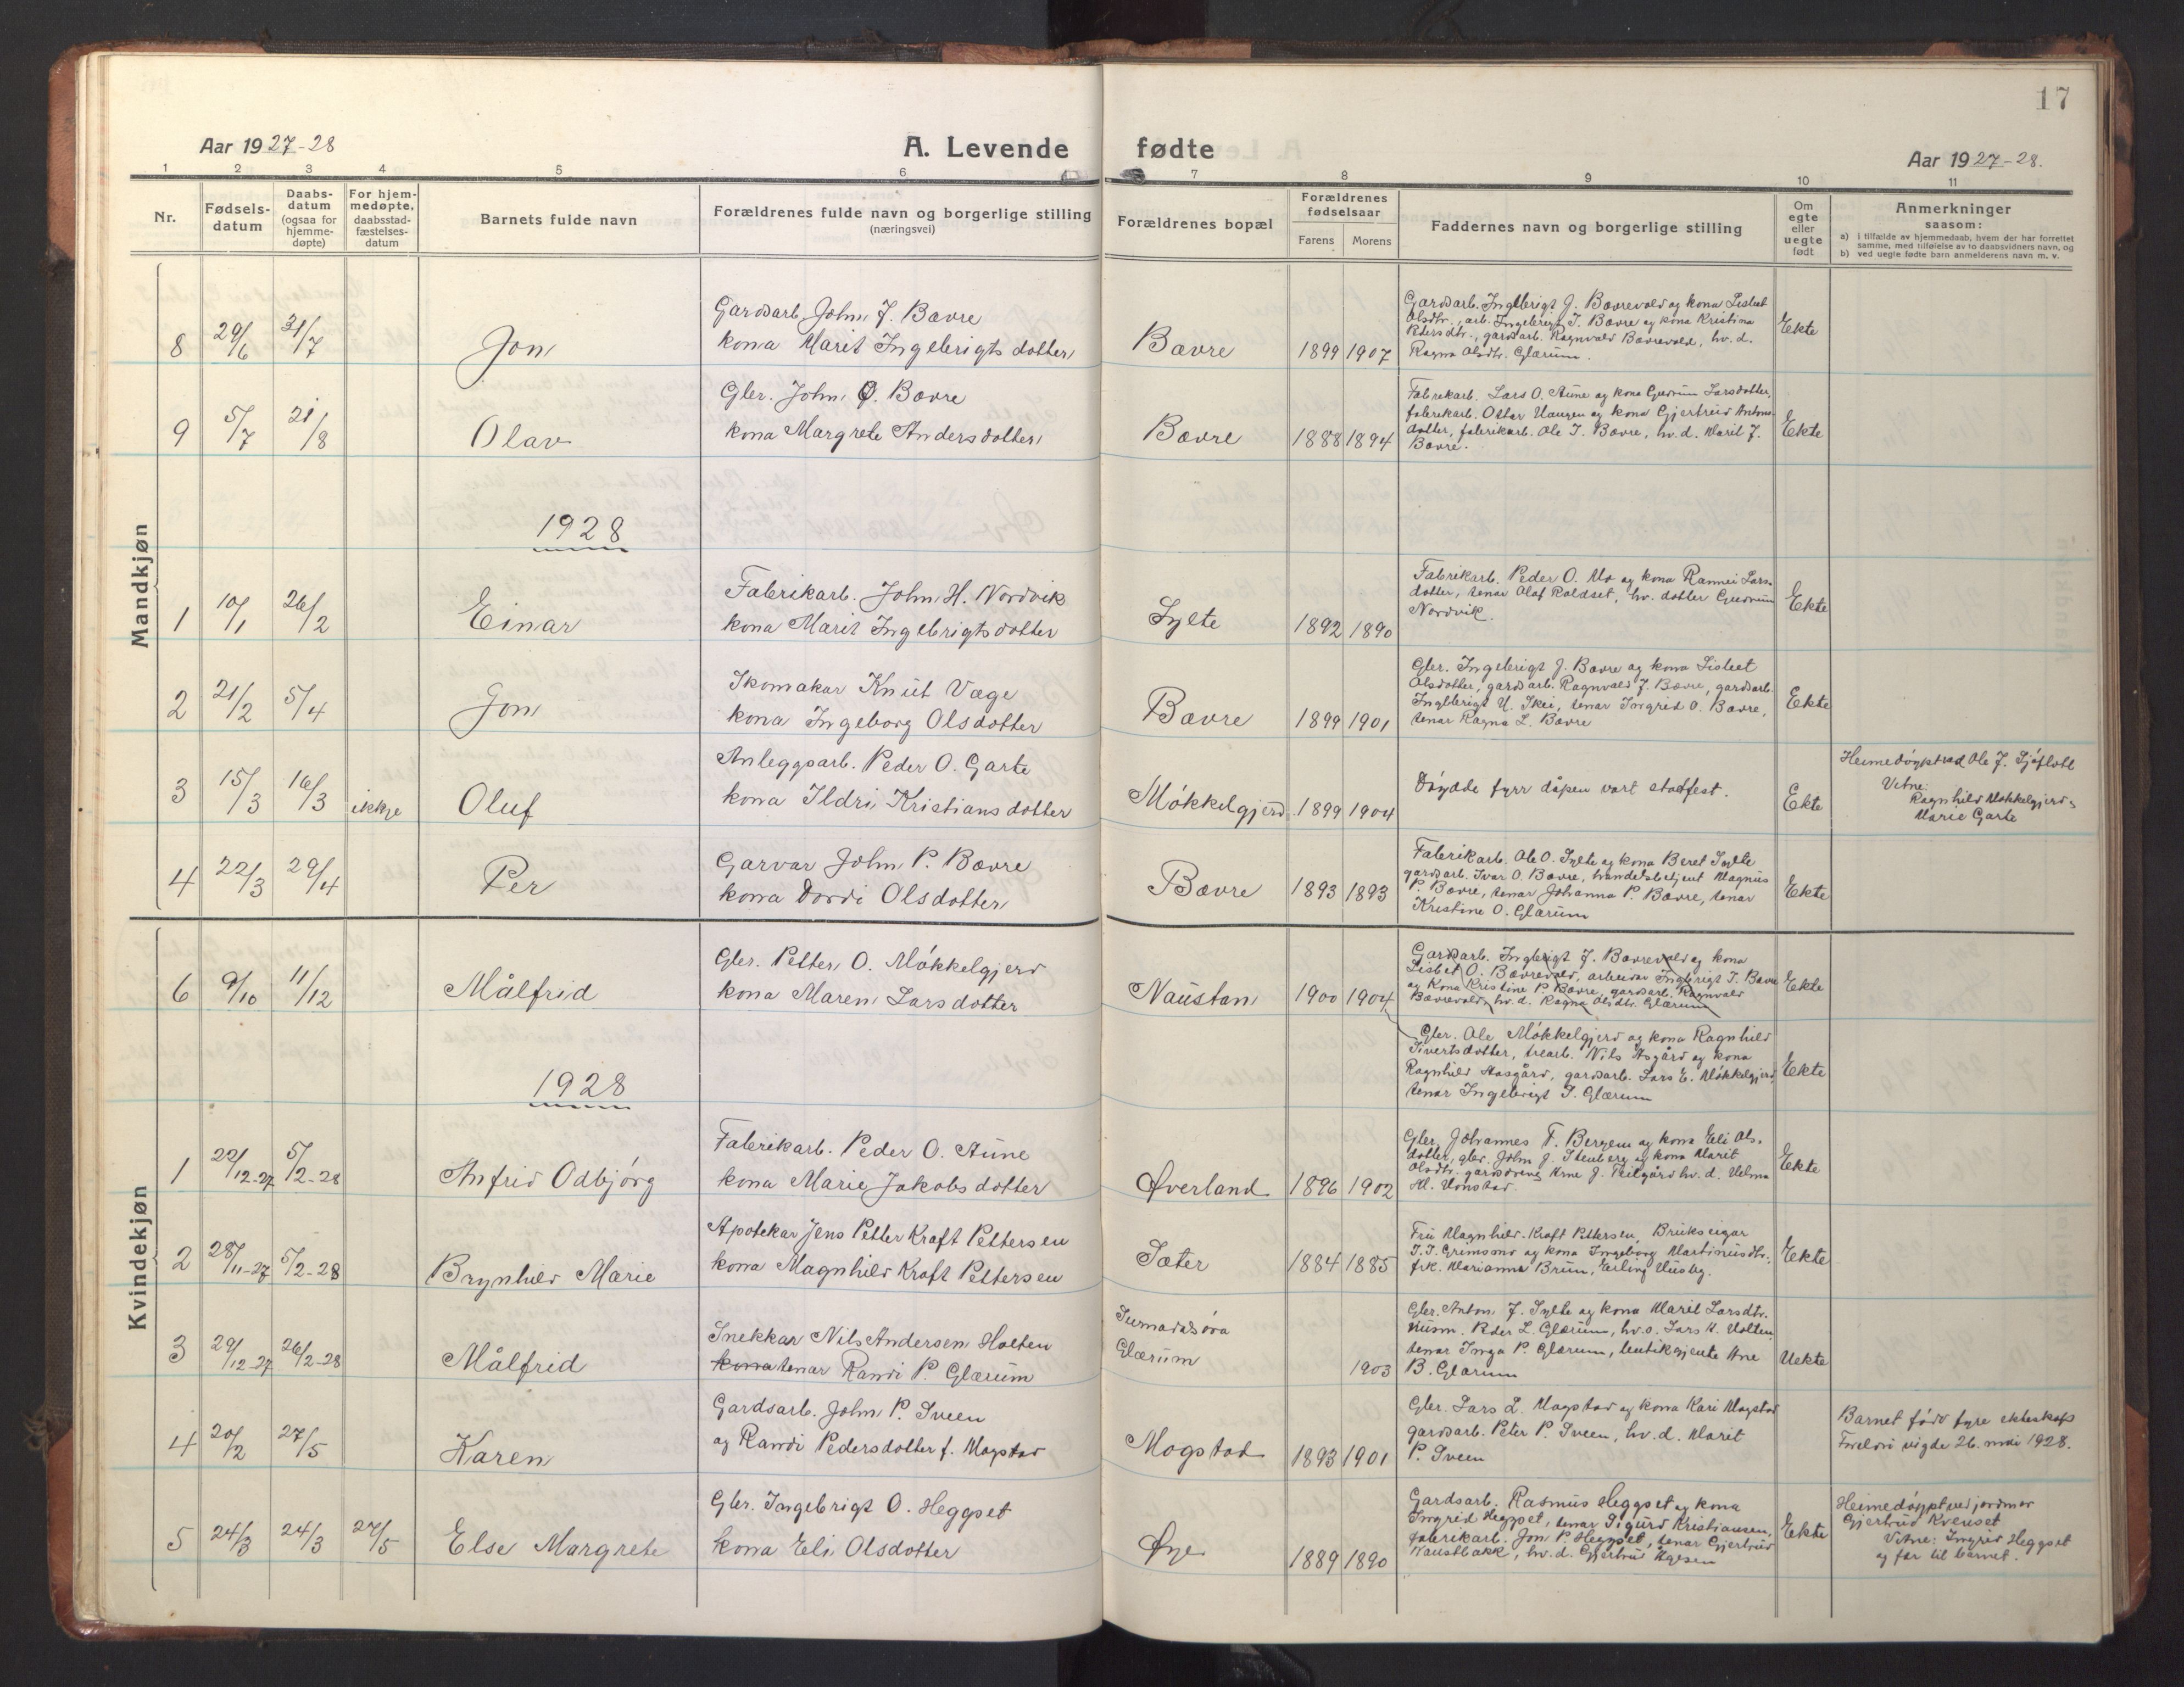 17
Aar 1927-28
A. Levende fødte
Aar 1927-28.
1 2 3 4 5 6 7 8 9 10 11
Nr.
Fødsels-
datum
Daabs-
datum
(ogsaa for
hjemme-
døpte)
For hjem-
medøpte,
daabsstad-
fæstelses-
datum
Barnets fulde navn
Forældrenes fulde navn og borgerlige stilling
(næringsvei)
Forældrenes bopæl
Forældrenes
fødselsaar
Farens Morens
Faddernes navn og borgerlige stilling
Om
egte
eller
uegte
født
Anmerkninger
saasom:
a) i tilfælde av hjemmedaab, hvem der har forrettet
samme, med tilføielse av to daabsvidners navn, og
b) ved uegte fødte barn anmelderens navn m. v.
Mandkjøn
8 29/6 31/7 Jon
Gardsarb. John J. Bævre
kona Marit Ingebrigtsdotter
Bævre 1899 1907
Gardsarb. Ingebrigt J. Bævrevold og kona Lisbet
Olsdtr., arb. Ingebrigt I. Bævre og kona Kristina
Petersdtr., gardsarb. Ragnvald Bævrevold, hv. d.
Ragna Olsdtr. Glærum.
Ekte
9 5/7 21/8 Olav
Gbr. John O. Bævre
kona Margrete Andersdotter
Bævre 1888 1894
Fabrikarb. Lars O. Aune og kona Gudrun Larsdotter,
fabrikarb. Ottar Haugen og kona Gjertrud Antons-
dotter, fabrikarb. Ole I. Bævre, hv. d. Marit J.
Bævre.
Ekte
1928
1 10/1 26/2 Einar
Fabrikarb. John H. Nordvik
kona Marit Ingebrigtsdotter
Sylte 1892 1890
Fabrikarb. Peder O. Mo og kona Rannei Lars-
dotter, tenar Olaf Roldset, hv. dotter Gudrun
Nordvik.
Ekte
2 21/2 5/4 Jon
Skomakar Knut Væge
kona Ingeborg Olsdotter
Bævre 1899 1901
Gbr. Ingebrigt J. Bævre og kona Lisbet
Olsdotter, gardsarb. Ragnvald J. Bævre, gardsarb.
Ingebrigt H. Skei, tenar Ingrid O. Bævre,
tenar Ragna L. Bævre
Ekte
3 15/3 16/3 ikkje Oluf
Anleggsarb. Peder O. Garte
kona Ildri Kristiansdotter
Møkkelgjerd 1899 1904
Døydde fyrr dåpen vart stadfest.
Ekte
Heimedøypt ved Ole J. Sjøflot
Vitne:
Ragnhild Møkkelgjerd,
Marie Garte
4 22/3 29/4 Per
Garvar John P. Bævre
kona Dordi Olsdotter
Bævre 1893 1893
Fabrikarb. Ole O. Sylte og kona Beret Sylte
gardsarb. Ivar O. Bævre, handelsbetjent Magnus
P. Bævre, tenar Johanna P. Bævre, tenar
Kristine O. Glærum
Ekte
Kvindekjøn
6 9/10 11/12 Målfrid
Gbr. Petter O. Møkkelgjerd
kona Maren Larsdotter
Naustan 1900 1904
Gardsarb. Ingebrigt J. Bævrevold og kona
Lisbet O. Bævrevold, arbeidar Ingebrigt I. Bævre
og kona Kristine P. Bævre, gardsarb. Ragnvald
Bævrevold, hv. d. Ragna Olsdtr. Glærum
Ekte
Gbr. Ole Møkkelgjerd og kona Ragnhild
Sivertsdotter, trearb. Nils Åsgård og kona
Ragnhild Aasgård, gardsarb. Lars E. Møkkelgjerd,
tenar Ingebrigt I. Glærum
Ekte
1928
1 22/12-27 5/2-28 Anfrid Odbjørg
Fabrikarb. Peder O. Aune
kona Marie Jakobsdotter
Øverland 1896 1902
Gbr. Johannes T. Bergem og kona Eli Ols-
dotter, gbr. John J. Stenberg og kona Marit
Olsdtr. gardsdreng Arne J. Teilgård hv. d. Velma
Hl. Honstad.
Ekte
2 28/11-27 5/2-28 Brynhild Marie
Apotekar Jens Petter Kraft Pettersen
kona Magnhild Kraft Pettersen
Sæter 1884 1885
Fru Magnhild Kraft Pettersen, Brukseigar
I. I. Gremsmo og kona Ingeborg Martinusdtr.,
frk. Marianna Brun, Erling Husby.
Ekte
3 29/12-27 26/2-28 Målfrid
Snekkar Nils Andersen Holten
kona tenar Randi P. Glærum
Surnadalsøra
Glærum
1903
Gbr. Anton J. Sylte og kona Marit Larsdtr.
Husm. Peder L. Glærum, hv. s. Lars H. Holten,
tenar Inga P. Glærum, butikgjente Ane
B. Glærum
Uekte
4 20/2 27/5 Karen
Gardsarb. John P. Sveen
og Randi Pedersdotter f. Mogstad
Mogstad 1893 1901
Gbr. Lars L. Mogstad og kona Kari Mogstad
gardsarb. Peter P. Sveen, hv. d. Marit
P. Sveen
Barnet født fyre ekteskap
Foreldri vigde 26. mai 1928.
5 24/3 24/3 27/5 Else Margrete
Gbr. Ingebrigt O. Heggset
kona Eli Olsdotter
Øye 1889 1890
Gardsarb. Rasmus Heggset og kona
Ingrid Heggset, tenar Sigurd Kristiansen,
fabrikarb. Jon P. Heggset, tenar Gjertrud
Naustbakk, hv. d. Gjertrud
Ekte
Heimedøypt ved jordmor
Gjertrud Kvenset
Vitne: Ingrid Heggset
og far til barnet.